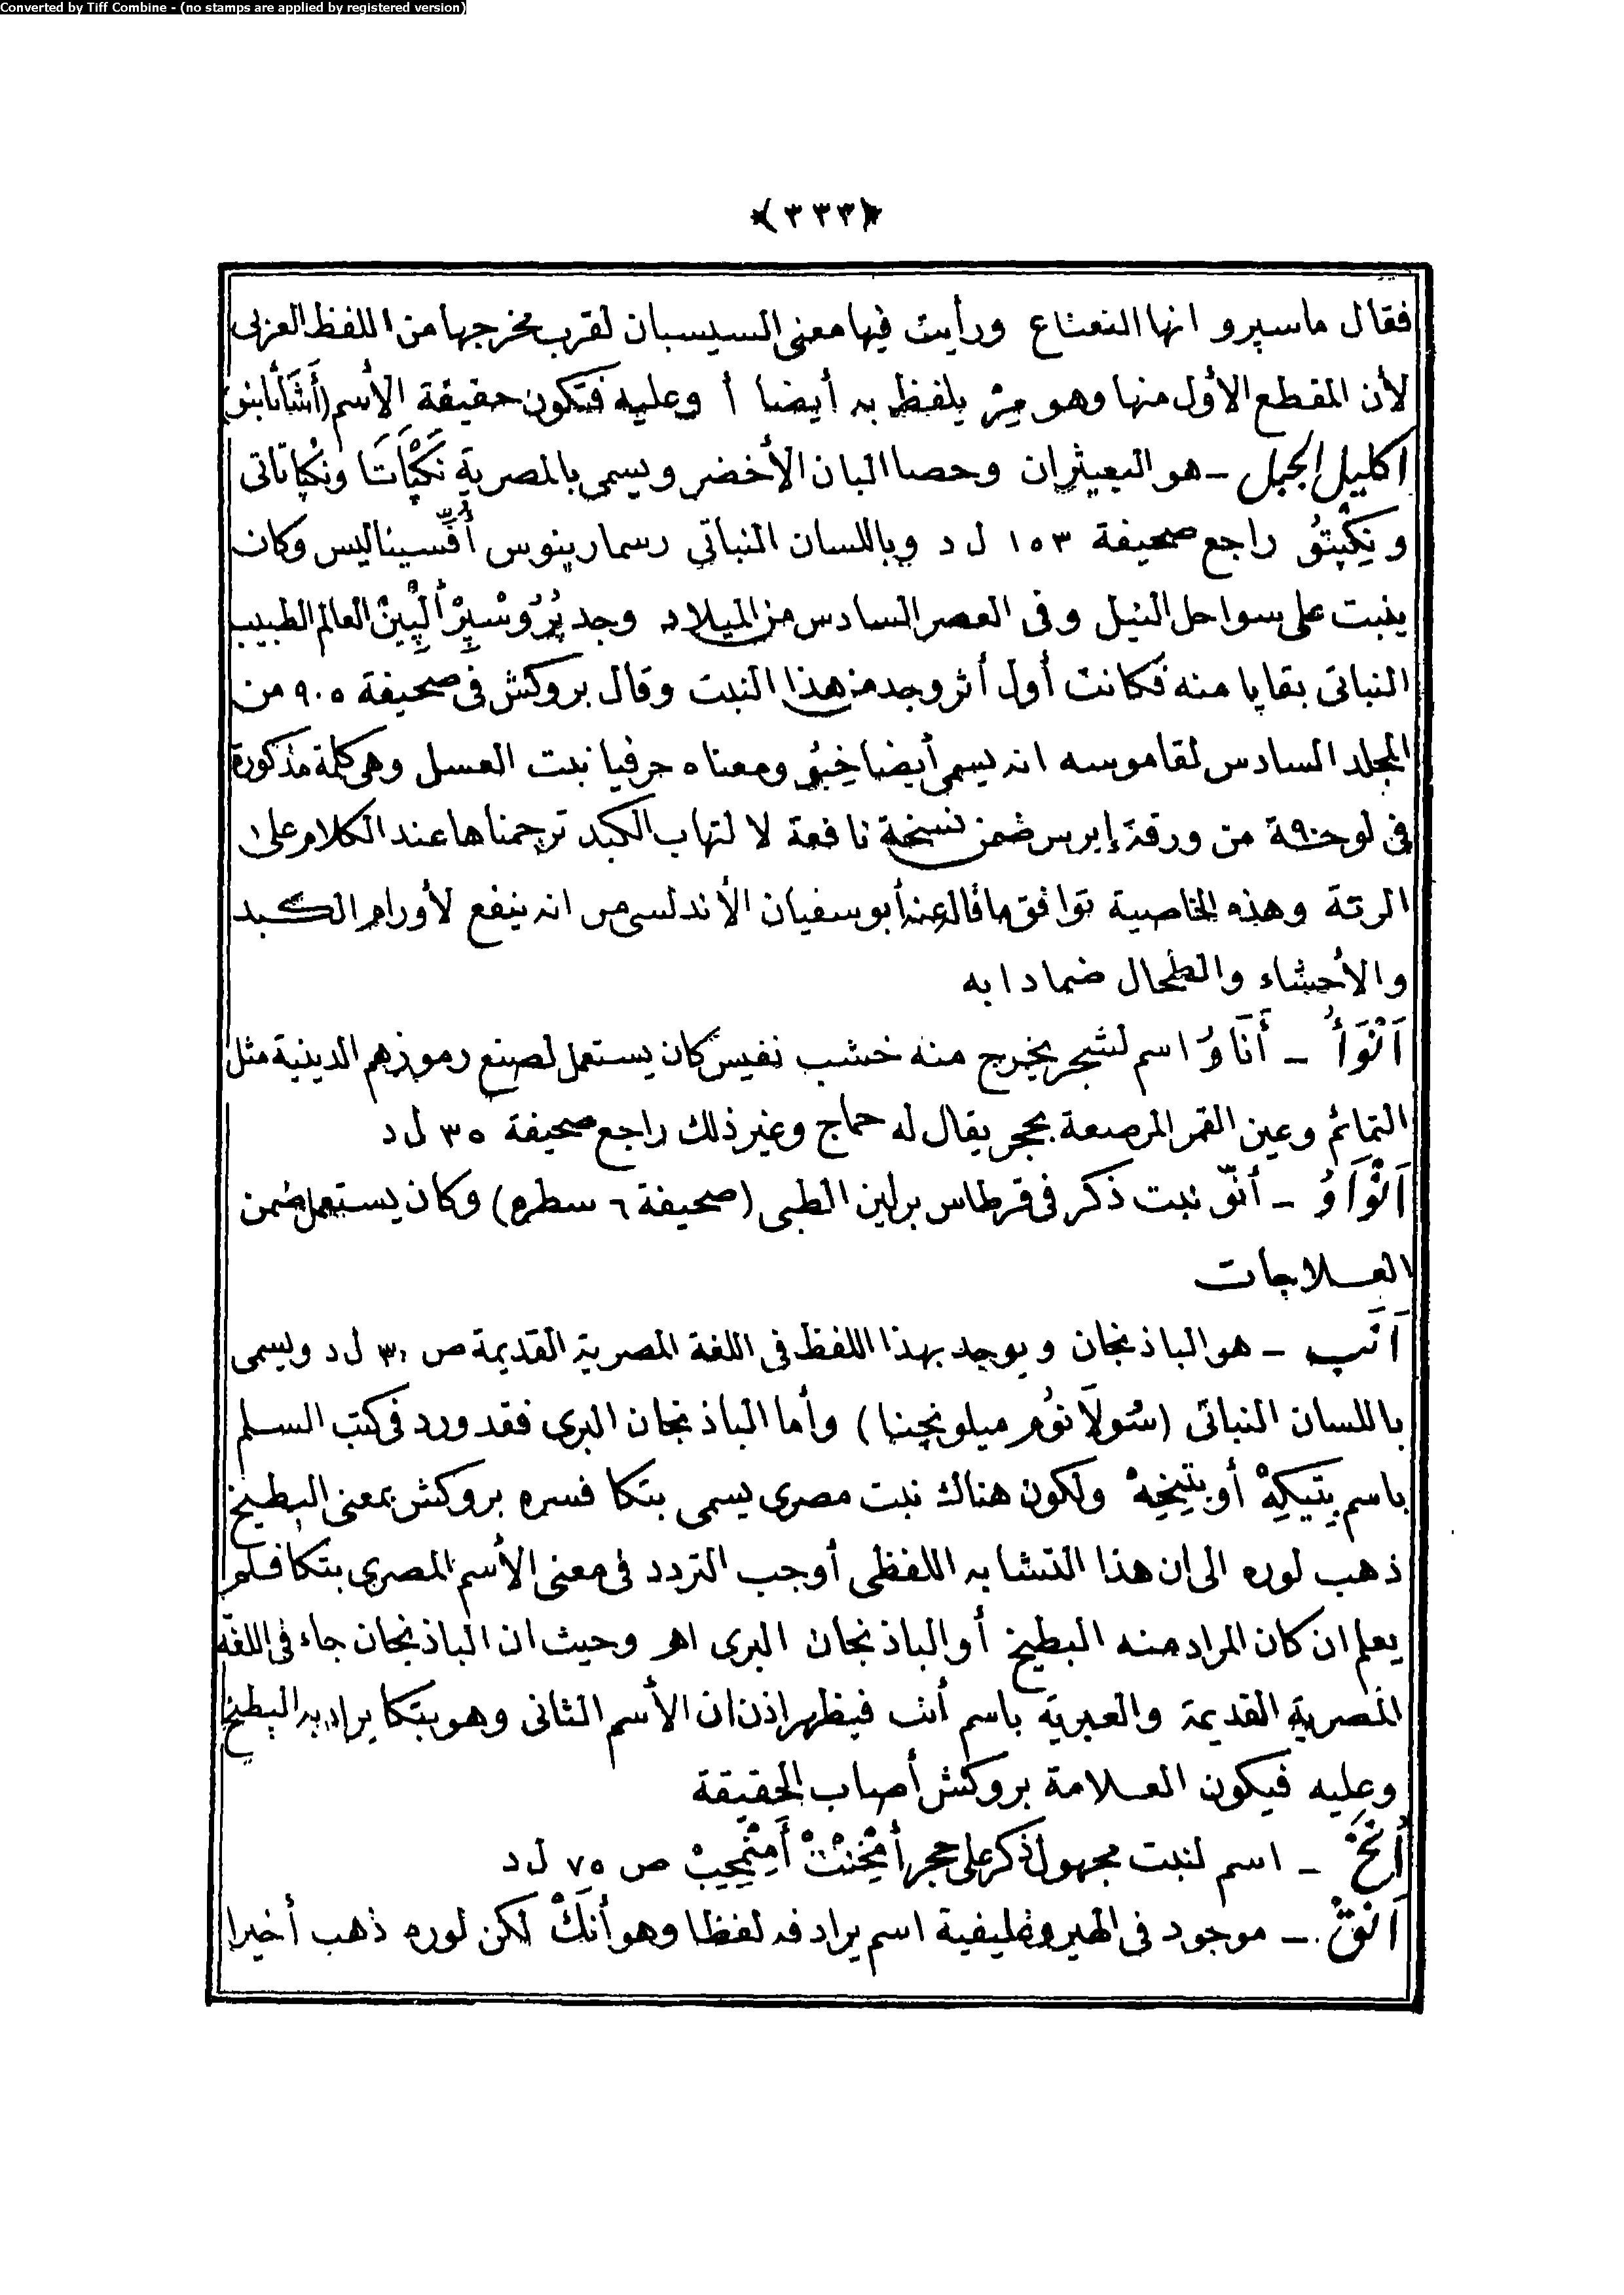 Converted by Tiff Combine - (no stamps are applied by registered version)
﴿٣٣٣﴾
فقال ماسپرو انها النعناع ورأيت فيها معنى السيسبان لقرب مخرجها من اللفظ العربى
لأن المقطع الأول منها وهو مِرْ يلفظ به أيضا أ وعليه فتكون حقيقة الأسم
اكليل الجبل ــ هو البعيثران وحصا البان الأخضر ويسمى بالمصرية نَكَپْاَتَا ونْكپاتاتى
و نِكْپِتُو راجع صحيفة ١٥٣ ل د وباللسان النباتى رسمارينوس أُفِّسيناليس وكان
ينبت على سواحل النيل وفى العصر السادس من الميلاد وجد پْرُوسْپِرْ أَلْپِينْ العالم الطبيب
النباتى بقايا منه فكانت أول أثر وجد من هذا النبت وقال بروكش فى صحيفة ٩٠٥ من
المجلد السادس لقاموسه انه يسمى أيضا ومعناه حرفيا نبت العسل وهى كلمة مذكورة
فى لوحة ٩٠ من ورقة إيرس ضمن نسخة نافعة لالتهاب الكبد ترجمناها عند الكلام على
الرتة وهذه الخاصية توافق ما قاله عنه أبو سفيان الأندلسى من انه ينفع لأورام الكبد
والأحشاء والطحال ضمادا به
اَنْوَأُ ــ أَنَاوُ اسم لشجر يخرج منه خشب نفيس كان يستعمل لصنع رموزهم الدينية مثل
التمائم وعين القمر المرصعة بحجر يقال له حماج وغير ذلك راجع صحيفة ٣٥ ل د
اَنْوَاوُ ــ أنّو نبت ذكر فى قرطاس برلين الطبى (صحيفة ٦ سطر ٥) وكان يستعمل ضمن
العلاجات
اَنَب ــ هو الباذنجان ويوجد بهذا اللفظ فى اللغة المصرية القديمة ص ٣٠ ل د ويسمى
باللسان النباتى (سُولَانُوم ميلونچنا) وأما الباذنجان البرى فقد ورد فى كتب السلم
باسم بِتِيكِهْ أو بِتِيخِهْ ولكون هناك نبت مصرى يسمى بتكا فسره بروكش بمعنى البطيخ
ذهب لوره الى ان هذا التشابه اللفظى أوجب التردد فى معنى الأسم المصرى بتكا فلم
يعلم ان كان المراد منه البطيخ أو الباذنجان البرى اهـ وحيث ان الباذنجان جاء فى اللغة
المصرية القديمة والعبرية باسم أنب فيظهر اذن ان الأسم الثانى وهو بتكا يراد به البطيخ
وعليه فيكون العلامة بروكش أصاب الحقيقة
أُنَخْ ــ اسم لنبت مجهول ذكر على حجر أَمْنِمْحِيبْ ص ٧٥ ل د
اَنَقْ ــ موجود فى الهيروغليفية اسم يرادفه لفظا وهو أَنَكْ لكن لوره ذهب أخيرا